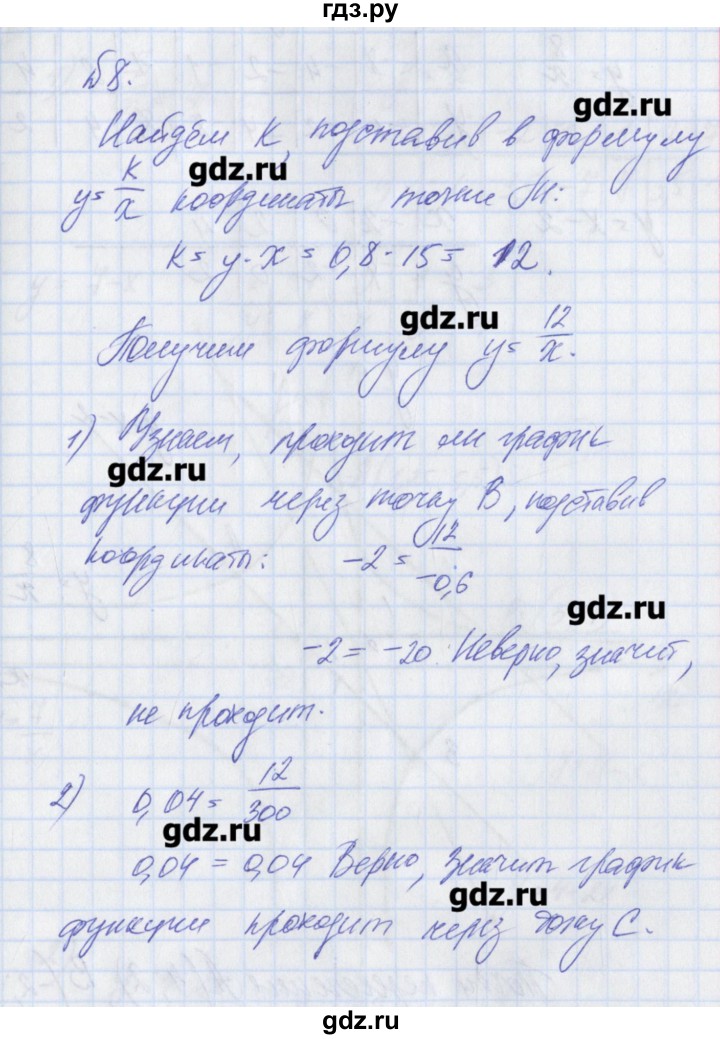 гдз.ру
№8.
gdz.ru
Найдём k, подставив в формулу
gdz.ru
y = k/x координаты точки М:
k = y · x = 0,8 · 15 = 12.
gdz.ru
Получим формулу y = 12/x.
1) Узнаем, проходит ли график
gdz.ru
функции через точку B, подставив
координаты: -2 = 12/-0,6
gdz.ru
-2 = -20 Неверно, значит,
не проходит.
2) 0,04 = 12/300
gdz.ru
0,04 = 0,04 Верно, значит график
gdz.ru
функции проходит через точку C.
gdz.ru